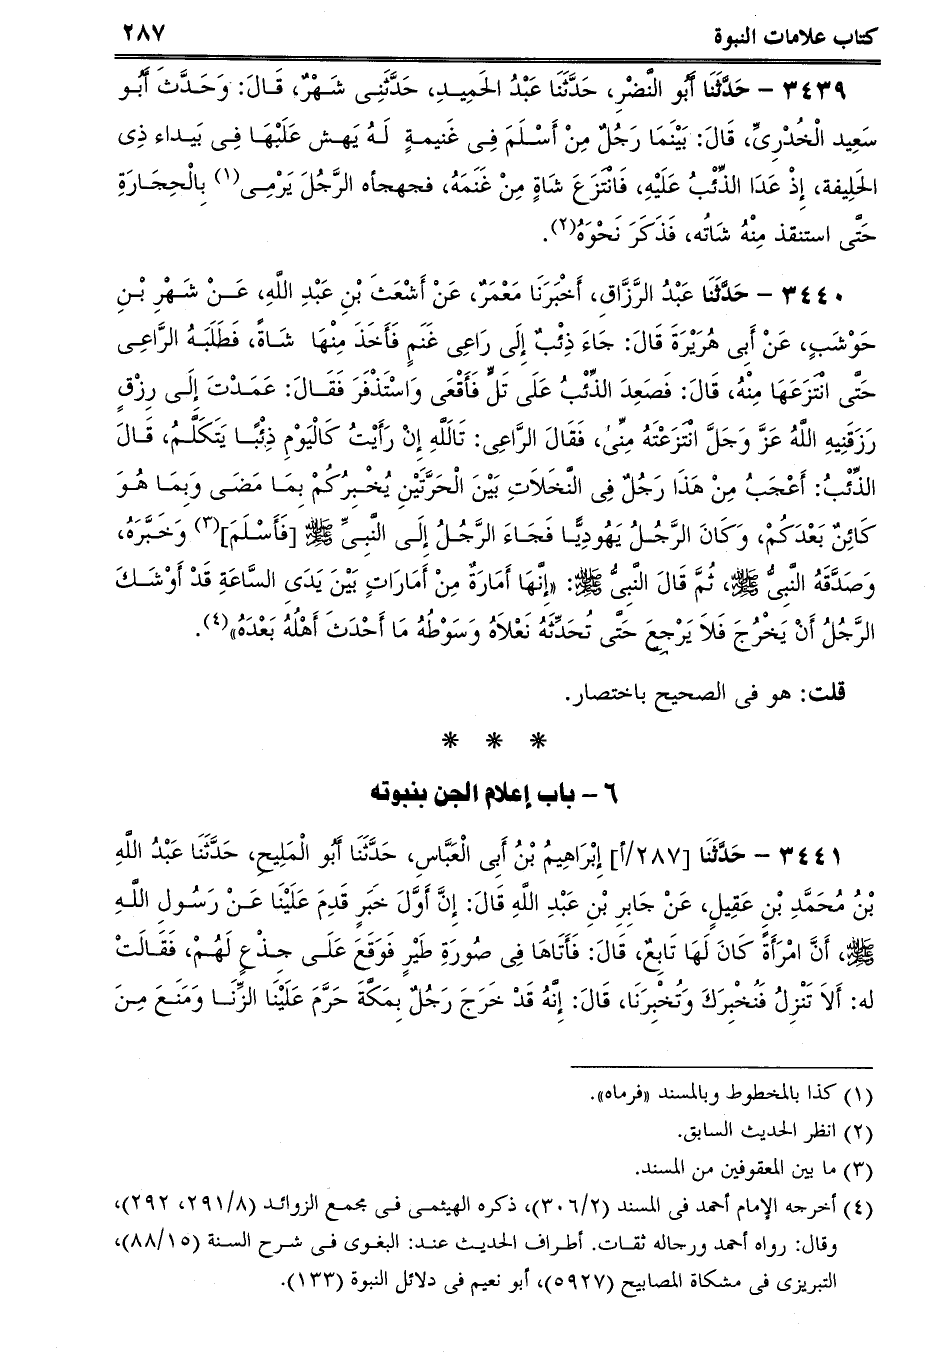 كتاب علامات النبوة ٢٨٧
٣٤٣٩ - حَدَّثَنَا أَبُو النَّضْرِ، حَدَّثَنَا عَبْدُ الحَمِيدِ، حَدَّثَنِى شَهْرٌ، قَالَ: وَحَدَّثَ أَبُو
سَعِيد الْخُدْرِىِّ، قَالَ: بَيْنَمَا رَجُلٌ مِنْ أَسْلَمَ فِى غَنِيمَةٍ لَهُ يَهش عَلَيْهَا فِى بَيداء ذِى
الحَلِيفة، إِذْ عَدَا الذِّئْبُ عَلَيْهِ، فَانْتَزَعَ شَاةٍ مِنْ غَنَمَهُ، فجهجأه الرَّجُلَ يَرْمِى(١) بِالْحِجَارَةِ
حَتَّى استنقذ مِنْهُ شَاتُه، فَذَكَرَ نَحْوَهُ(٢).
٣٤٤٠ - حَدَّثَنَا عَبْدُ الرَّزَّاقِ، أَخْبَرَنَا مَعْمَرٌ، عَنْ أَشْعَثَ بْنِ عَبْدِ اللَّهِ، عَنْ شَهْرِ بْنِ
حَوْشَبٍ، عَنْ أَبِى هُرَيْرَةَ قَالَ: جَاءَ ذِئْبٌ إِلَى رَاعِى غَنَمٍ فَأَخَذَ مِنْهَا شَاةً، فَطَلَبَهُ الرَّاعِى
حَتَّى انْتَزَعَهَا مِنْهُ، قَالَ: فَصَعِدَ الذِّئْبُ عَلَى تَلٍّ فَأَقْعَى وَاسْتَذْفَرَ فَقَالَ: عَمَدْتَ إِلَى رِزْقٍ
رَزَقَنِيهِ اللَّهُ عَزَّ وَجَلَّ انْتَزَعْتَهُ مِنِّى، فَقَالَ الرَّاعِى: تَاللَّهِ إِنْ رَأَيْتُ كَالْيَوْمِ ذِئْبًا يَتَكَلَّمُ، قَالَ
الذِّئْبُ: أَعْجَبُ مِنْ هَذَا رَجُلٌ فِى النَّخَلاَتِ بَيْنَ الْحَرَّتَيْنِ يُخْبِرُكُمْ بِمَا مَضَى وَبِمَا هُوَ
كَائِنٌ بَعْدَكُمْ، وَكَانَ الرَّجُلُ يَهُودِيًّا فَجَاءَ الرَّجُلُ إِلَى النَّبِىِّ ﷺ [فَأَسْلَمَ](٣) وَخَبَّرَهُ،
وَصَدَّقَهُ النَّبِىُّ ﷺ، ثُمَّ قَالَ النَّبِىُّ ﷺ: «إِنَّهَا أَمَارَةٌ مِنْ أَمَارَاتٍ بَيْنَ يَدَىِ السَّاعَةِ قَدْ أَوْشَكَ
الرَّجُلُ أَنْ يَخْرُجَ فَلاَ يَرْجِعَ حَتَّى تُحَدِّثَهُ نَعْلاَهُ وَسَوْطُهُ مَا أَحْدَثَ أَهْلُهُ بَعْدَهُ»(٤).
قلت: هو فى الصحيح باختصار.
* * *
٦ - باب إعلام الجن بنبوته
٣٤٤١ - حَدَّثَنَا [٢٨٧/أ] إِبْرَاهِيمُ بْنُ أَبِى الْعَبَّاسِ، حَدَّثَنَا أَبُو الْمَلِيحِ، حَدَّثَنَا عَبْدُ اللَّهِ
بْنُ مُحَمَّدِ بْنِ عَقِيلٍ، عَنْ جَابِرِ بْنِ عَبْدِ اللَّهِ قَالَ: إِنَّ أَوَّلَ خَبَرٍ قَدِمَ عَلَيْنَا عَنْ رَسُولِ اللَّهِ
ﷺ، أَنَّ امْرَأَةً كَانَ لَهَا تَابِعٌ، قَالَ: فَأَتَاهَا فِى صُورَةِ طَيْرٍ فَوَقَعَ عَلَى جِذْعٍ لَهُمْ، فَقَالَتْ
له: أَلاَ تَنْزِلُ فَنُخْبِرَكَ وَتُخْبِرَنَا، قَالَ: إِنَّهُ قَدْ خَرَجَ رَجُلٌ بِمَكَّةَ حَرَّمَ عَلَيْنَا الزِّنَا وَمَنَعَ مِنَ
(١) كذا بالمخطوط وبالمسند «فرماه».
(٢) انظر الحديث السابق.
(٣) ما بين المعقوفين من المسند.
(٤) أخرجه الإمام أحمد فى المسند (٣٠٦/٢)، ذكره الهيثمى فى مجمع الزوائد (٢٩١/٨، ٢٩٢)،
وقال: رواه أحمد ورجاله ثقات. أطراف الحديث عند: البغوى فى شرح السنة (٨٨/١٥)،
التبريزى فى مشكاة المصابيح (٥٩٢٧)، أبو نعيم فى دلائل النبوة (١٣٣).